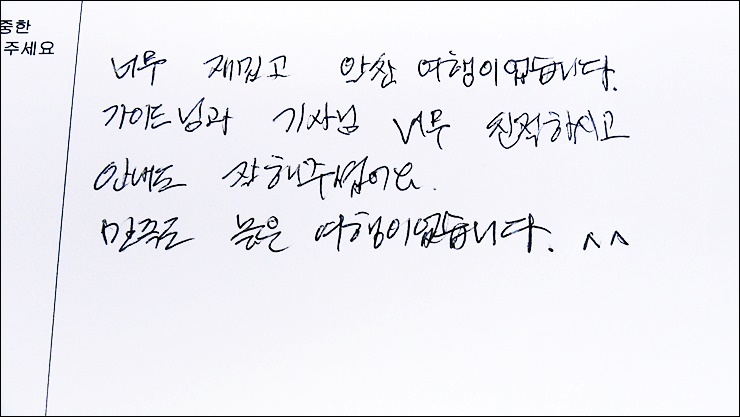 중한
주세요
너무 재밌고 알찬 여행이였습니다.
가이드님과 기사님 너무 친절하시고
안내도 잘해주셨어요.
만족도 높은 여행이였습니다. ^^